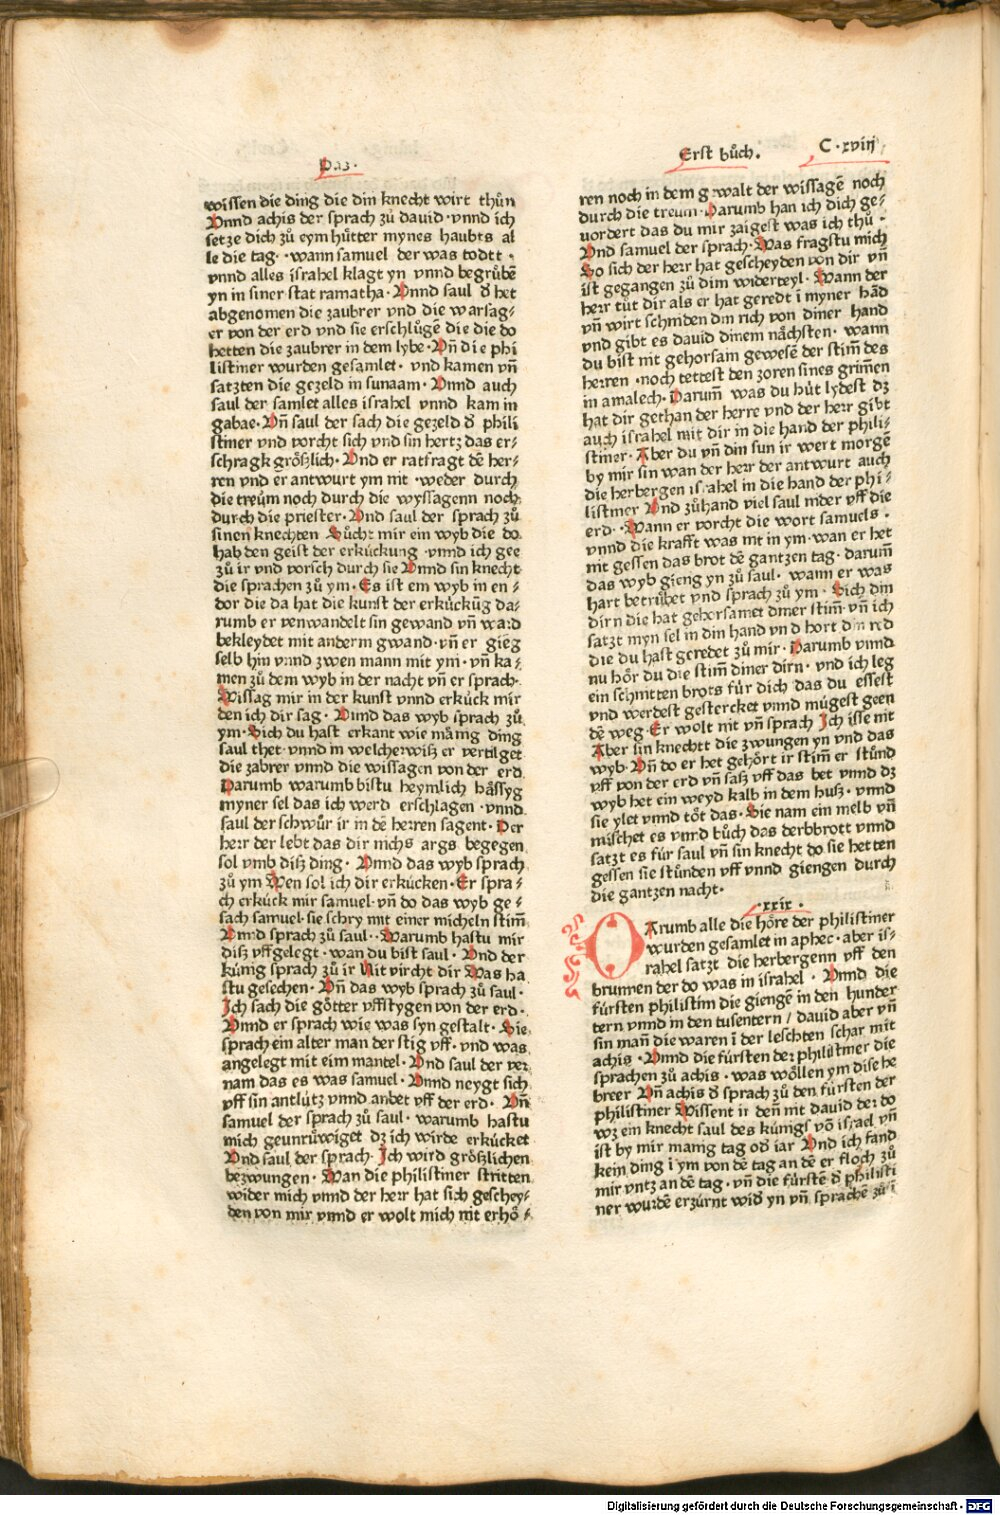 Daz.
Erst bůch.
C.xviij
wissen die ding die din knecht wirt thůn
Vnnd achis der sprach zů dauid. vnnd ich
setze dich zů eym hůtter mynes haubts al
le die tag. wann samuel der was todtt.
vnnd alles israhel klagt yn vnnd begrůbē
yn in siner stat ramatha. Vnnd saul d het
abgenomen die zaubrer vnd die warsag-
er von der erd vnd sie erschlůgē die die do
hetten die zaubrer in dem lybe. Vñ die phi
listiner wurden gesamlet. vnd kamen vñ
satzten die gezeld in sunaam. Vnnd auch
saul der samlet alles israhel vnnd kam in
gabae. Vñ saul der sach die gezeld d phili
stiner vnd vorcht sich vnd sin hertz das er-
schragk größlich. Vnd er ratfragt dē her-
ren vnd er antwurt ym nit. weder durch
die treům noch durch die wyssagenn noch
durch die priester. Vnd saul der sprach zů
sinen knechten Sůcht mir ein wyb die do
hab den geist der erkückung vnnd ich gee
zů ir vnd vorsch durch sie Vnnd sin knecht
die sprachen zů ym. Es ist ein wyb in en-
dor die da hat die kunst der erkückūg da-
rumb er verwandelt sin gewand vñ ward
bekleydet mit anderm gwand. vñ er giēg
selb hin vnnd zwen mann mit ym. vñ ka-
men zů dem wyb in der nacht vñ er sprach.
Wissag mir in der kunst vnnd erkůck mir
den ich dir sag. Vnnd das wyb sprach zů
ym. Sich du hast erkant wie mānig ding
saul thet. vnnd in welcherwiß er vertilget
die zabrer vnnd die wissagen von der erd
Darumb warumb bistu heymlich hässyg
myner sel das ich werd erschlagen. vnnd
saul der schwůr ir in dē herren sagent. Der
herr der lebt das dir nichs args begegen
sol vmb diß ding. Vnnd das wyb sprach
zů ym Wen sol ich dir erkücken. Er spra-
ch erkůck mir samuel. vñ do das wyb ge-
sach samuel. sie schry mit einer micheln stim̄
Vnnd sprach zů saul.. Warumb hastu mir
diß vffgelegt. wan du bist saul. Vnd der
künig sprach zů ir Nit vircht dir Was ha
stu gesechen. Vñ das wyb sprach zů saul.
Ich sach die götter vffstygen von der erd.
Vnnd er sprach wie was syn gestalt. Sie
sprach ein alter man der stig vff. vnd was
angelegt mit eim mantel. Vnd saul der ver
nam das es was samuel. Vnnd neygt sich
vff sin antlütz vnnd anbet vff der erd. Vñ
samuel der sprach zů saul. warumb hastu
mich geunrůwiget dz ich wirde erkücket
Vnd saul der sprach. Ich wird größlichen
bezwungen. Wan die philistiner stritten
wider mich vnnd der herr hat sich geschey-
den von mir vnnd er wolt mich nit erhö-
ren noch in dem gewalt der wissagē noch
durch die treum. Darumb han ich dich ge-
vordert das du mir zaigest was ich thů.
Vnd samuel der sprach. Was fragstu mich
So sich der herr hat gescheyden von dir vñ
ist gegangen zů dim widerteyl. Wann der
herr tůt dir als er hat geredt ī myner hād
vñ wirt schniden din rich von diner hand
vnd gibt es dauid dinem nächsten. wann
du bist nit gehorsam gewesē der stim̄ des
herren. noch tettest den zoren sines grim̄en
in amalech. Darum̄ was du hůt lydest dz
hat dir gethan der herre vnd der herr gibt
auch israhel mit dir in die hand der phili-
stiner. Aber du vñ din sun ir wert morgē
by mir sin wan der herr der antwurt auch
die herbergen israhel in die hand der phi-
listiner Vnd zůhand viel saul nider vff die
erd. Wann er vorcht die wort samuels.
vnnd die krafft was nit in ym. wan er het
nit gessen das brot dē gantzen tag. darum̄
das wyb gieng yn zů saul. wann er was
hart betrůbet vnd sprach zů ym. Sich din
dirn die hat gehorsamet diner stim̄. vñ ich
satzt myn sel in din hand vnd hort din red
die du hast geredet zů mir. Darumb vnnd
nu hör du die stim̄ diner dirn. vnd ich leg
ein schnitten brots für dich das du essest
vnd werdest gestercket vnnd mügest geen
dē weg. Er wolt nit vñ sprach Ich isse nit
Aber sin knechtt die zwungen yn vnd das
wyb. Vñ do er het gehört ir stim̄ er stůnd
vff von der erd vñ saß vff das bet vnnd dz
wyb het ein weyd kalb in dem huß. vnnd
sie ylet vnnd töt das. Sie nam ein melb vñ
mischet es vnnd bůch das derbbrott vnnd
satzt es für saul vñ sin knecht do sie hetten
gessen sie stůnden vff vnnd giengen durch
die gantzen nacht.
.xxix.
DArumb alle die höre der philistiner
wurden gesamlet in aphec. aber is-
rahel satzt die herbergenn vff den
brunnen der do was in israhel. Vnnd die
fürsten philistim die giengē in den hunder
tern vnnd in den tusentern / dauid aber vñ
sin mañ die waren ī der leschten schar mit
achis. Vnnd die fürsten der philistiner die
sprachen zů achis. was wöllen ym dise he
breer Vñ achis d sprach zů den fürsten der
philistiner Wissent ir deñ nit dauid der do
wz ein knecht saul des künigs vō israel vñ
ist by mir manig tag od iar Vnd ich fand
kein ding ī ym von dē tag an dē er floch zů
mir vntz an dē tag. vñ die fürstē d philisti
ner wurdē erzürnt wid yn vñ sprachē zů ī
Digitalisierung gefördert durch die Deutsche Forschungsgemeinschaft - DFG